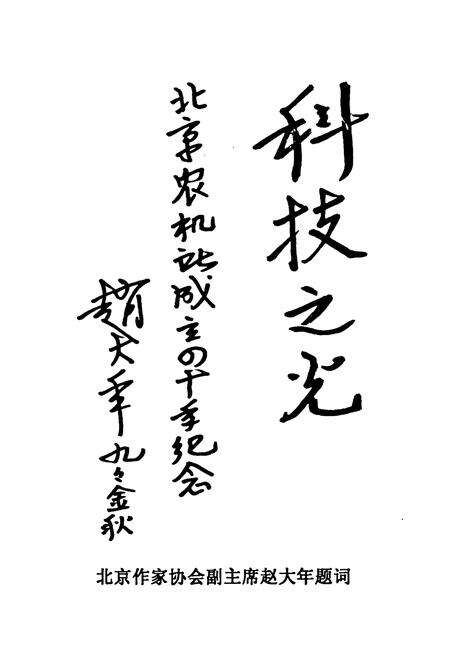 科技之光
北京农机站成立四十年纪念
趙大年 九々金秋
北京作家协会副主席赵大年题词